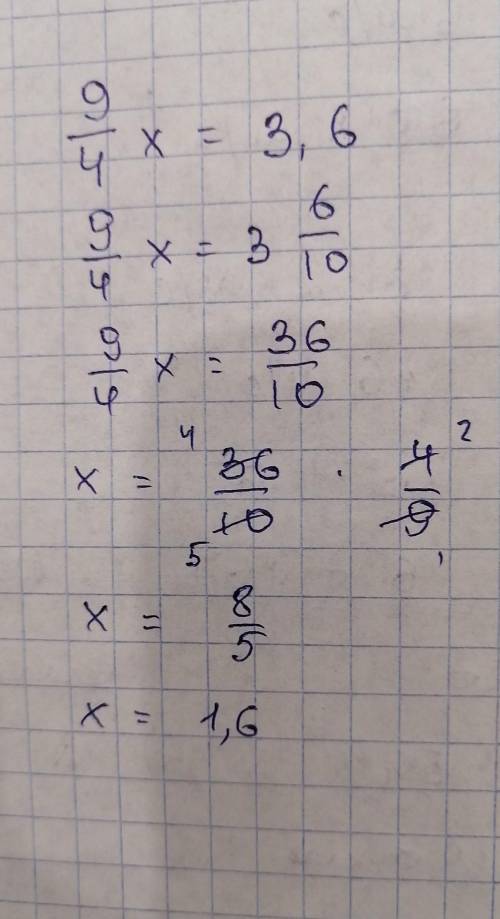 9/4 x = 3,6
9/4 x = 3 6/10
9/4 x = 36/10
x = 4 36/10 5 · 4/9 2 1
x = 8/5
x = 1,6